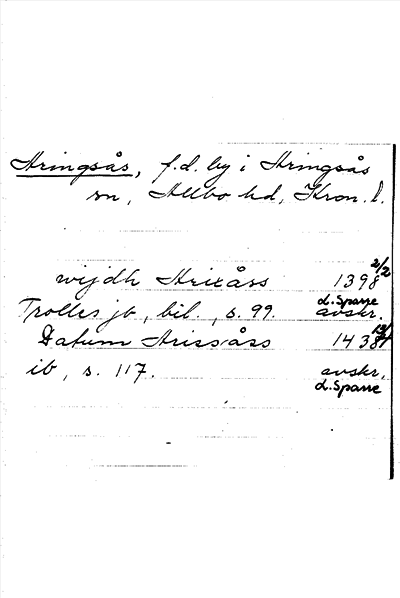 Hringsås, f.d. by i Hringsås
sn, Allbo hd, Kron. l.
wijdh Hrixåss 1398 2/2
Trolles jb, bil., s. 99. avskr. d. Sparre
Datum Hrissåss 1438
ib, s. 117. avskr. d. Sparre